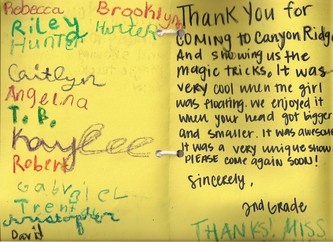 Rebecca
Brooklyn
Riley
Hunter
Hunter
Caitlyn
Angelina
T. B.
Kaylee
Robert
Gabriel
Trent
christopher
David
Thank You for
COMING to Canyon Ridge
And showing us the
magic tricks, It was
very cool when the girl
was floating. We enjoyed it
when your head got bigger
and smaller. It was awesome
It was a very unique show
PLEASE come again soon!
Sincerely,
2nd Grade
THANKS! MISS